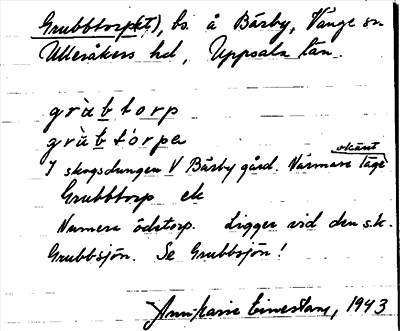 Grubbtorp(et), bs. å Bärby, Vänge sn
Ulleråkers hd, Uppsala län.
grùbtorp
grùbtòrpe
okänt
I skogsdungen V Bärby gård. Närmare läge
Grubbtorp ek
Numera ödetorp. Ligger vid den s.k.
Grubbsjön. Se Grubbsjön!
Ann-Marie, 1943